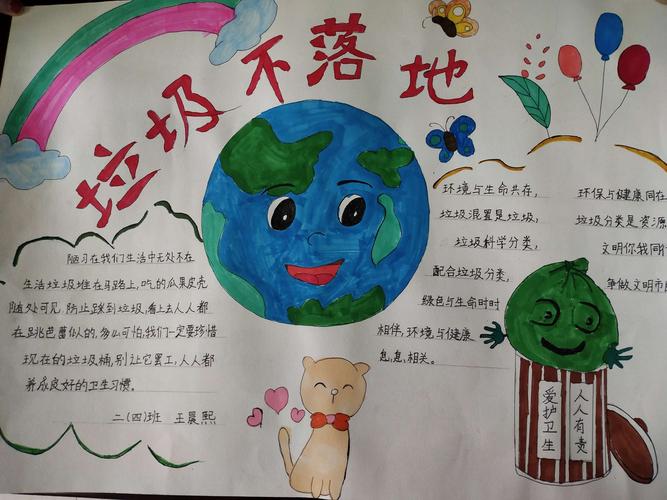 垃圾不落地
陋习在我们生活中无处不在
生活垃圾堆在马路上,吃的瓜果皮壳
随处可见,防止踩到垃圾,看上去人人都
在跳芭蕾似的,多么可怕,我们一定要珍惜
现在的垃圾桶,别让它罢工,人人都
养成良好的卫生习惯。
二(四)班 王晨熙
环境与生命共存,
垃圾混置是垃圾,
垃圾科学分类,
配合垃圾分类,
绿色与生命时时
相伴,环境与健康
息息相关。
环保与健康同在
垃圾分类是资源
文明你我同行
争做文明市
爱护卫生
人人有责